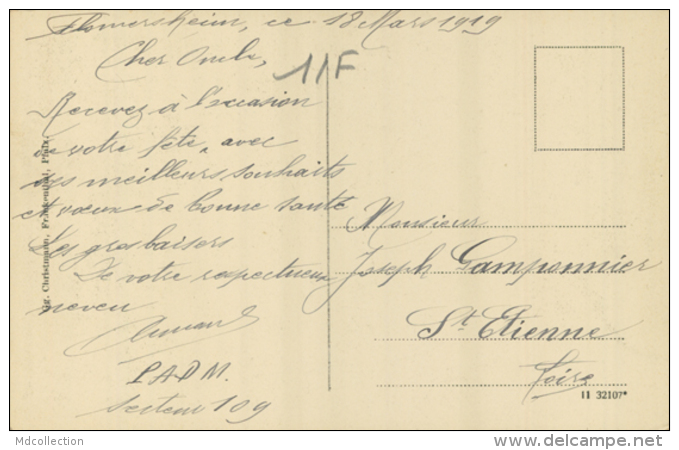 Flomersheim, ce 18 Mars 1919
Cher Oncle,
Recevez à l'occasion
de votre fête, avec
mes meilleurs souhaits
et vœux de bonne santé
Les gros baisers
De votre respectueux
neveu
Armand
P.A.D.M.
Secteur 109
1/F
Monsieur
Joseph Gamponnier
St Etienne
Loire
Lig. Christmann, Frankenthal, Pfalz.
11 32107*
Mdcollection
www.delcampe.net